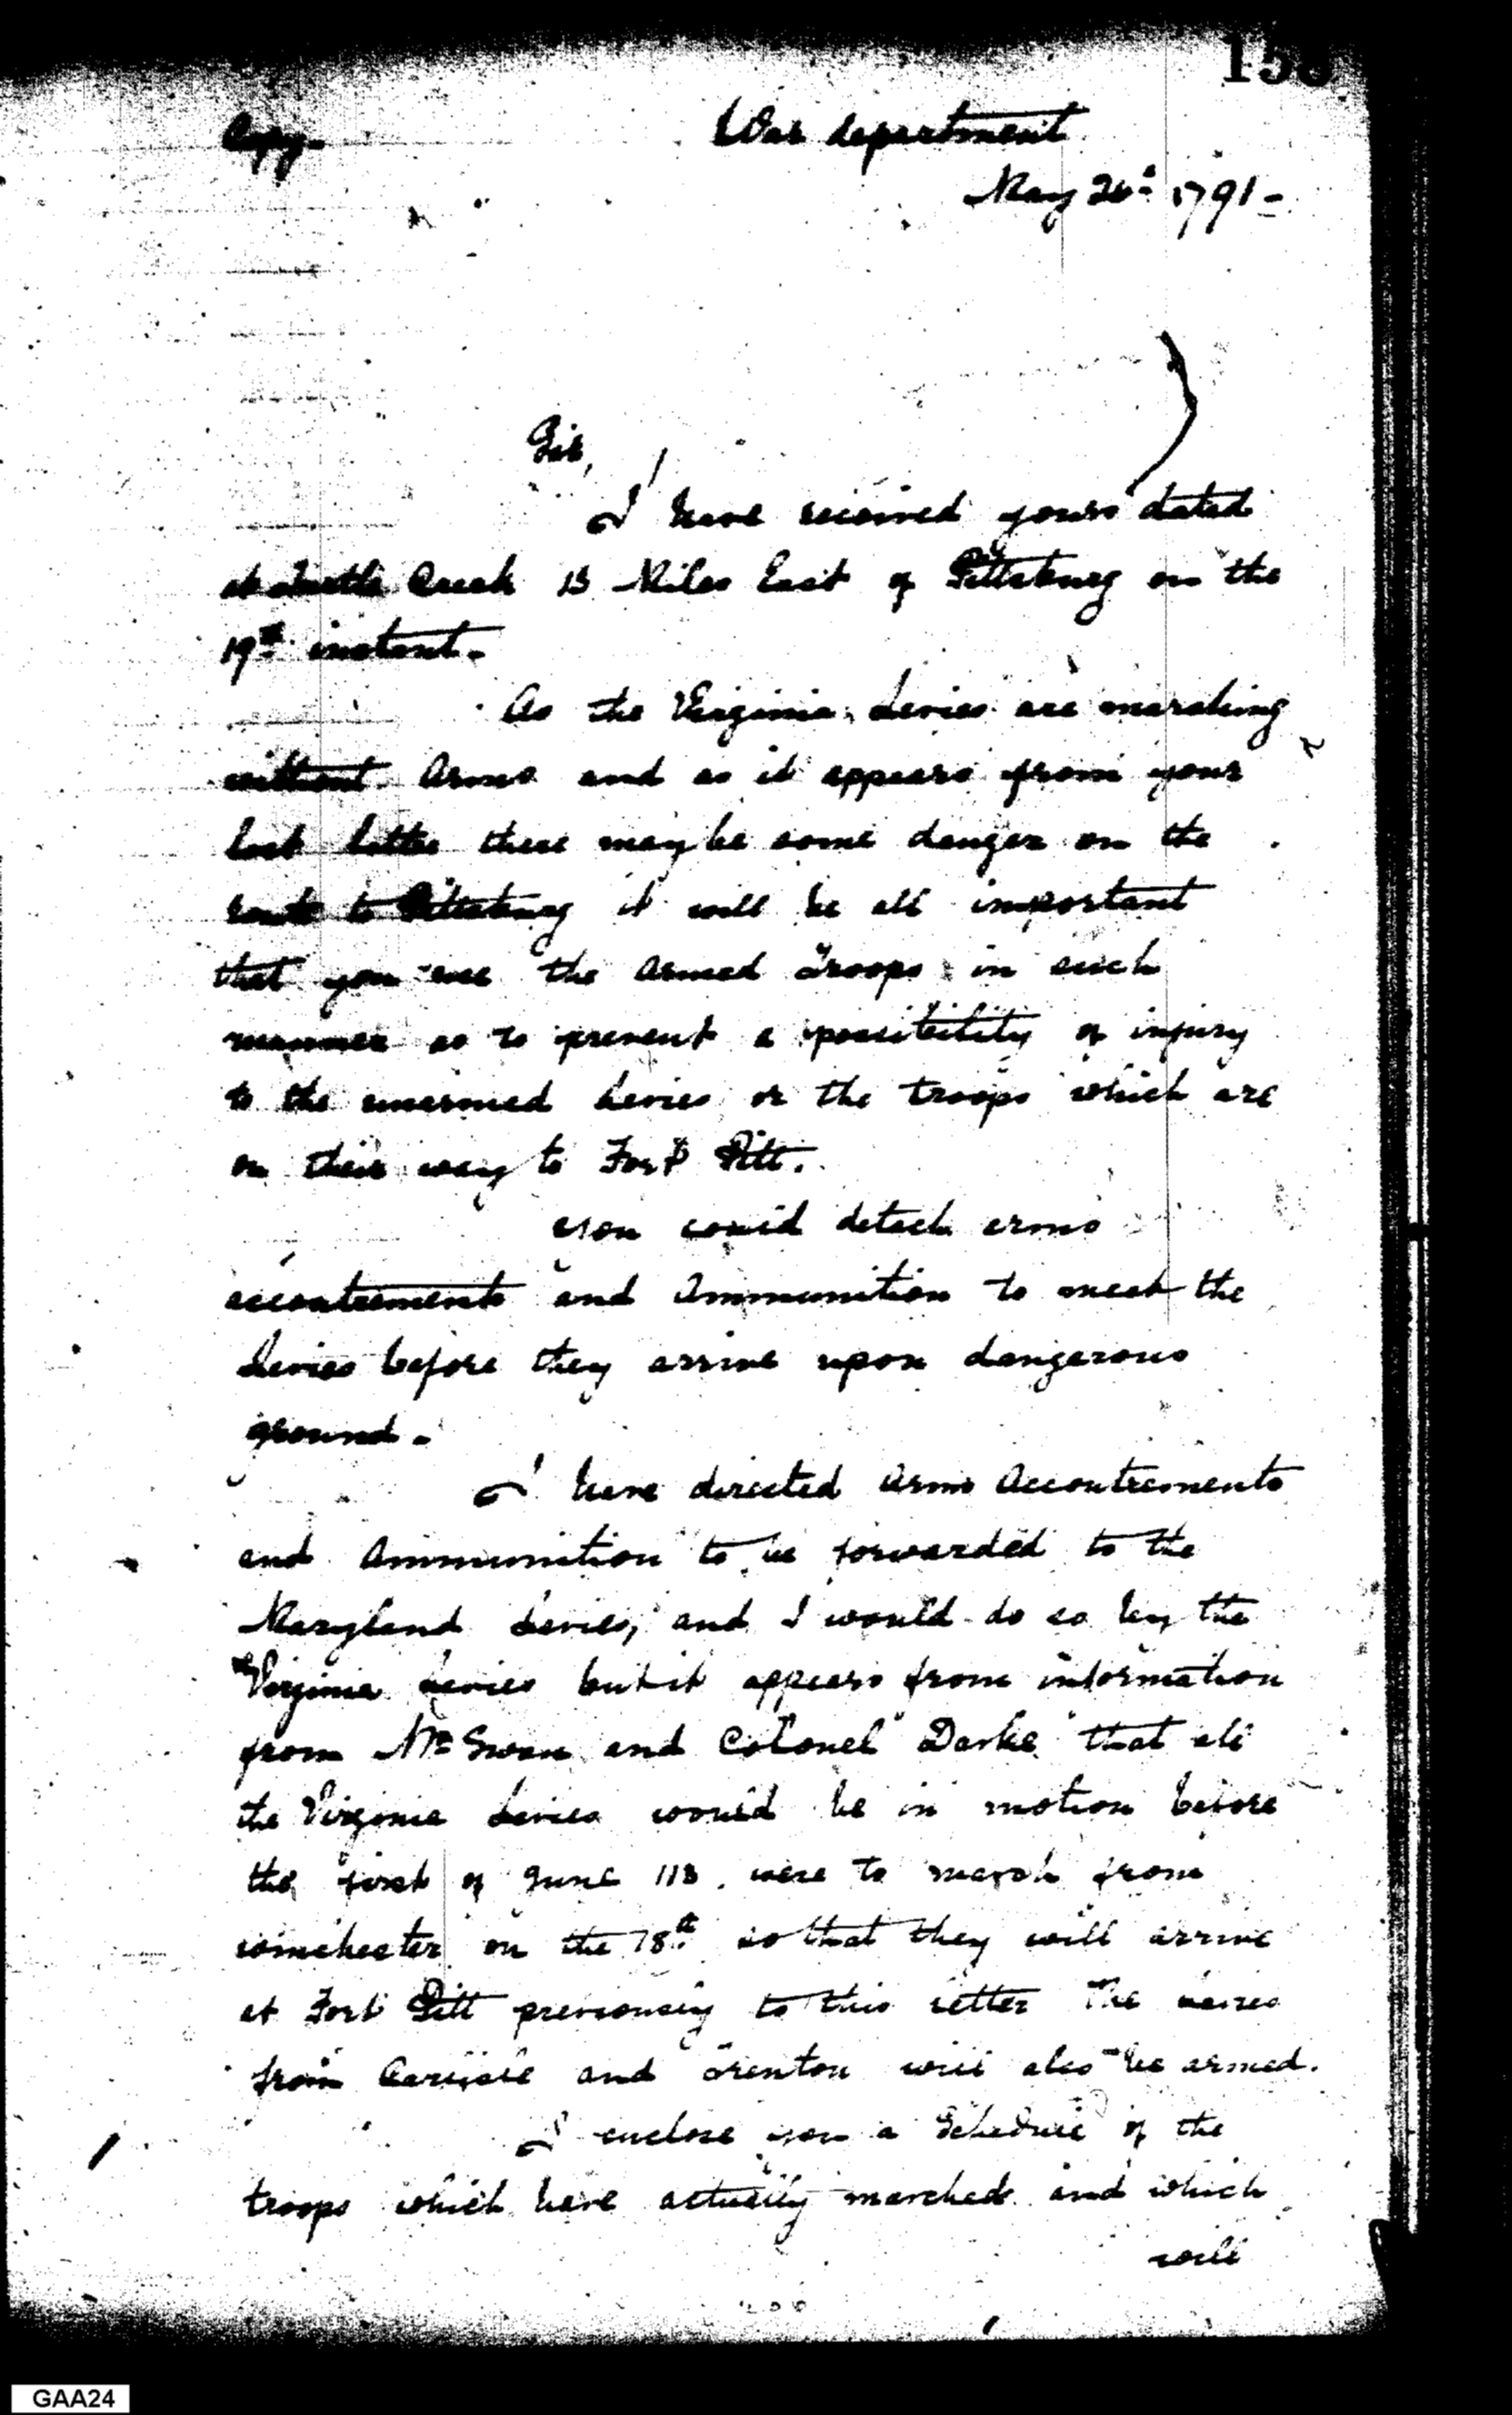 Copy-
War department
May 26th 1791-
Sir,
I have received yours dated
at Turtle Creek 13 Miles East of Pittsburg on the
19th instant-
As the Virginia Levies are marching
without Arms and as it appears from your
last letter there may be some danger on the
route to Pittsburg it will be all important
that you use the Armed Troops in such
manner as to prevent a possibility of injury
to the unarmed Levies or the troops which are
on their way to Fort Pitt.
You could detach arms
accoutrements and Ammunition to meet the
Levies before they arrive upon dangerous
ground-
I have directed Arms Accoutrements
and Ammunition to be forwarded to the
Maryland Levies, and I would do so by the
Virginia Levies but it appears from information
from Mr Swan and Colonel Darke that all
the Virginia Levies would be in motion before
the first of June 113 were to march from
Winchester on the 18th so that they will arrive
at Fort Pitt previously to this letter The Levies
from Carlisle and Trenton will also be armed.
I enclose you a Schedule of the
troops which have actually marched and which
will
GAA24